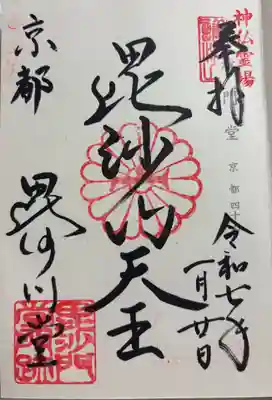 神仏霊場
奉拝
堂 京都四十
令和七年
一月廿日
毘沙門天王
京都
毘沙門堂